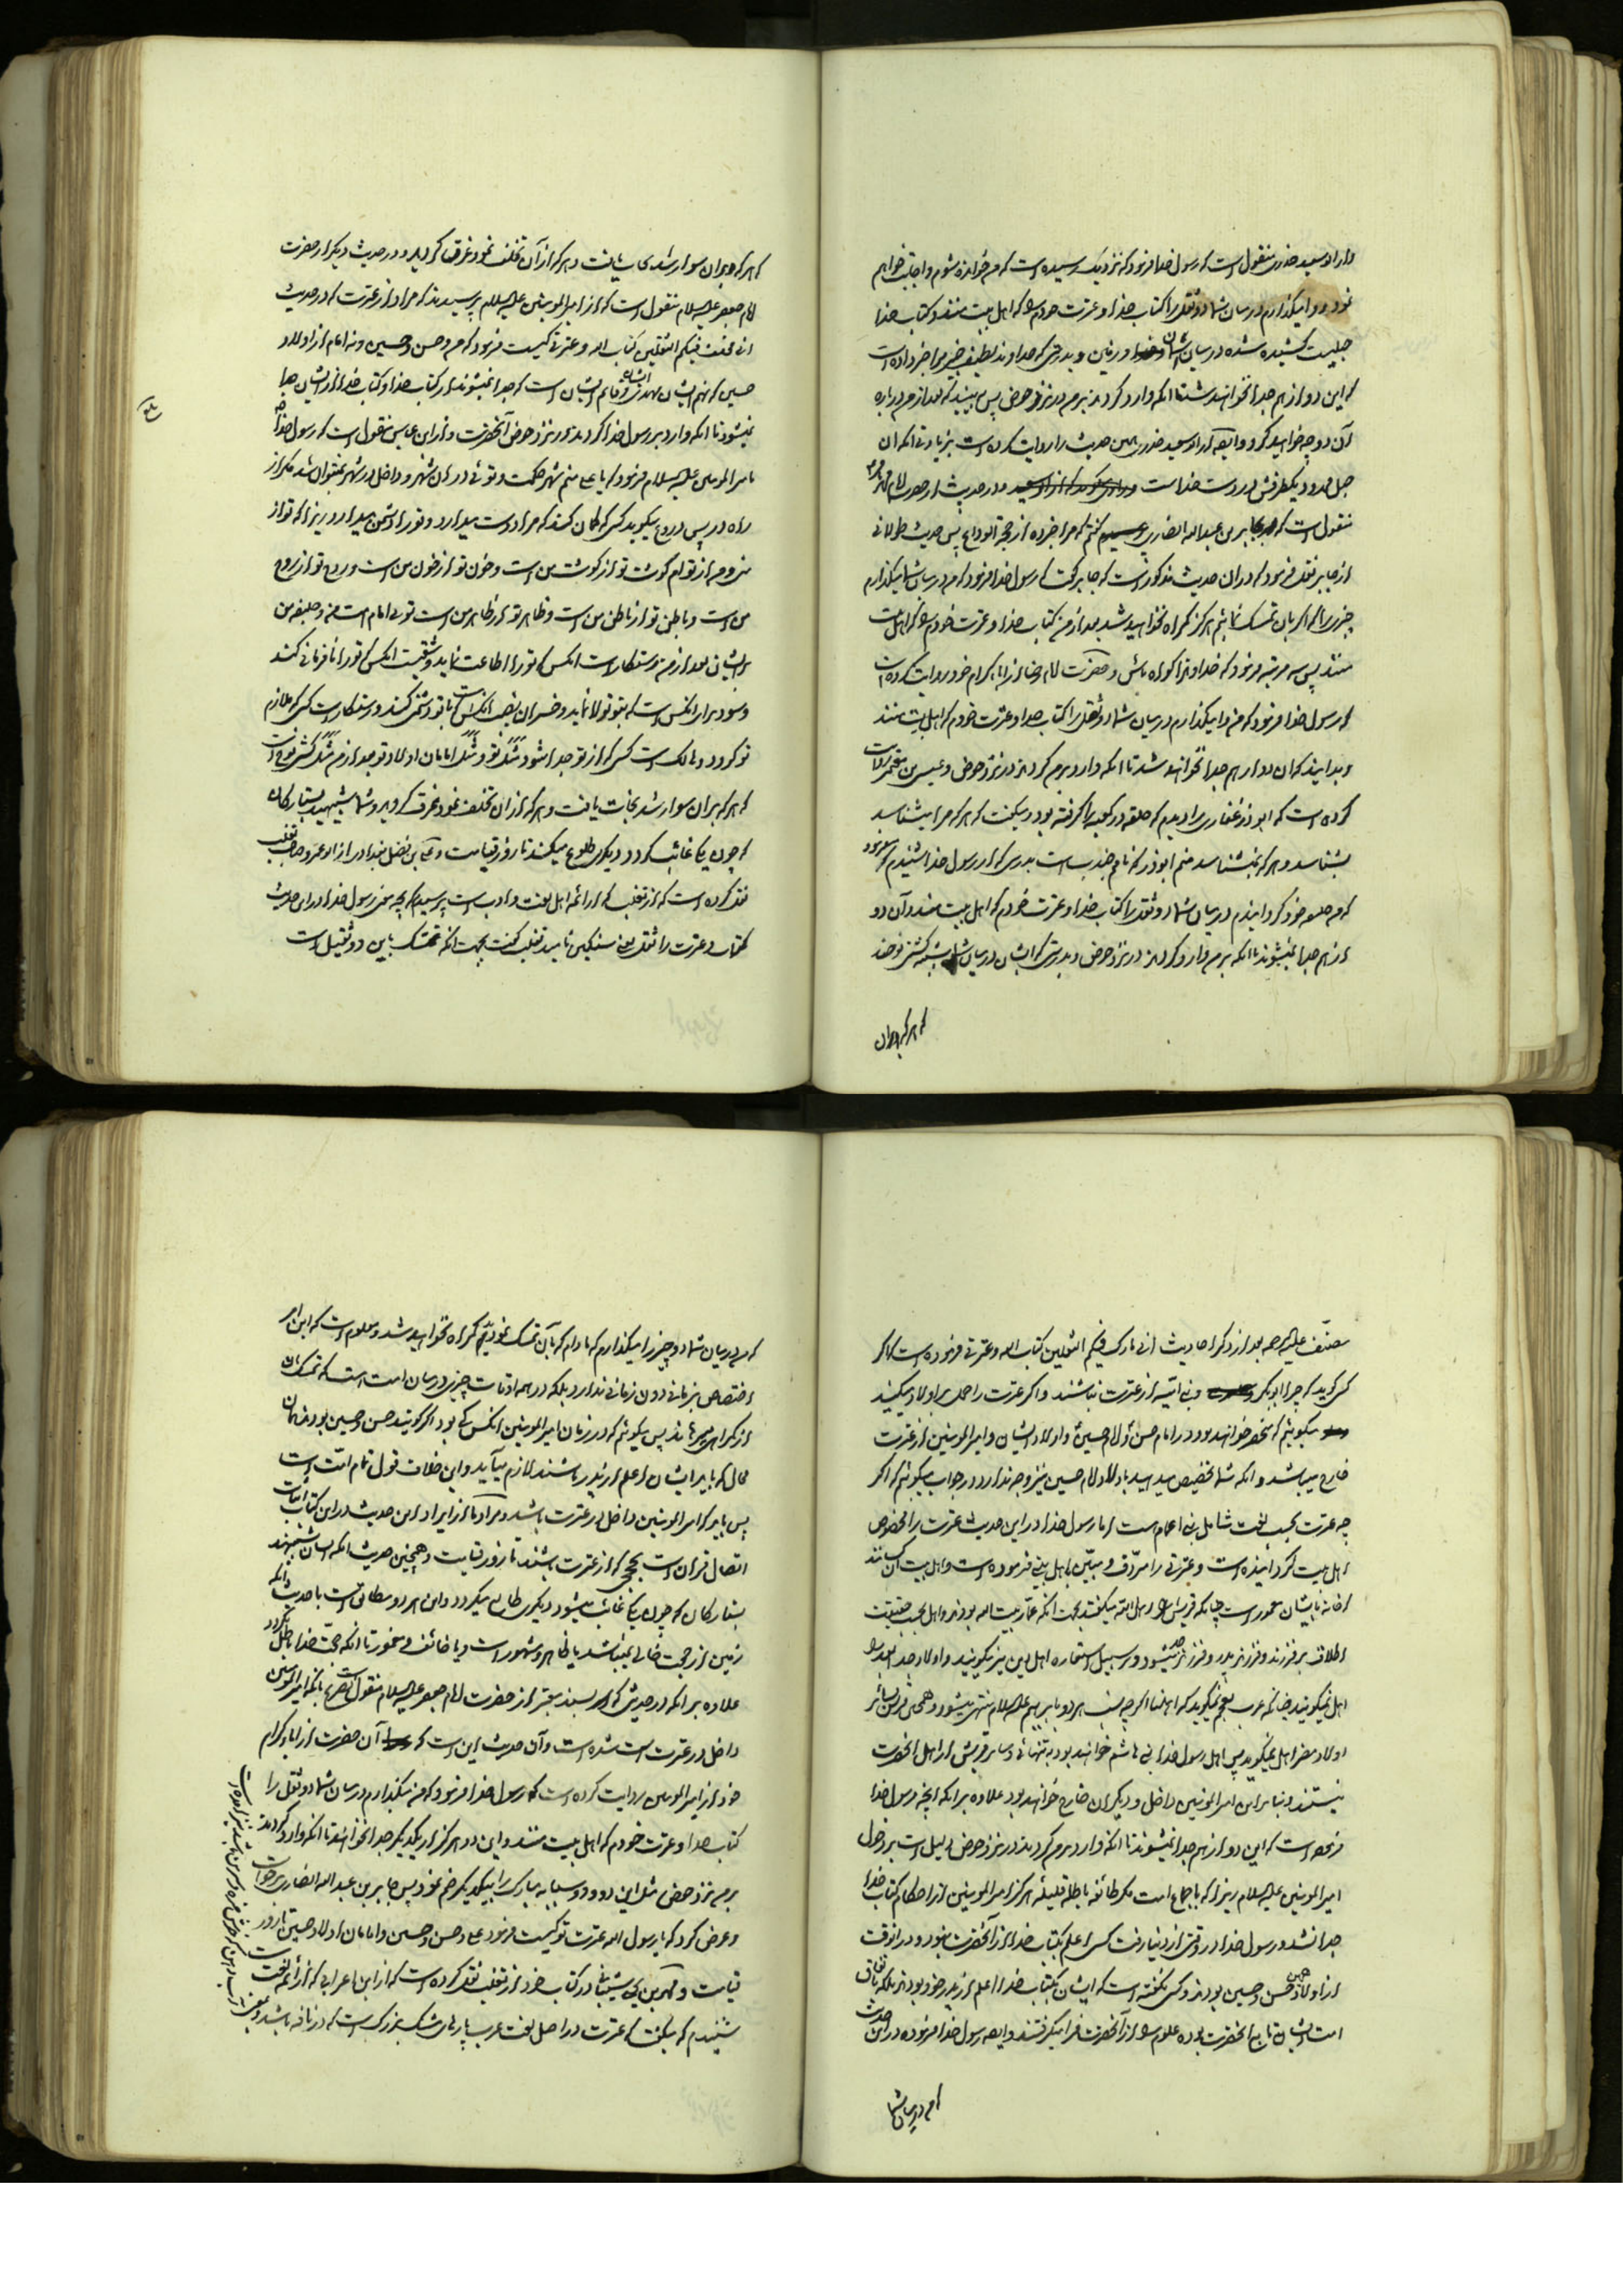 و از ابو سعید خدری منقول است که رسول خدا فرمود که نزدیک رسیده است که من خوانده شوم و اجابت خواهم
نمود و وا میگذارم در میان شما دو ثقل را کتاب خدا و عترت خودم را که اهل بیت منند و کتاب خدا
حبلیست کشیده شده در میان آسمان و زمین و بدرستی که خداوند لطیف خبیر مرا خبر داده است
که این دو از هم جدا نخواهند شد تا آنکه وارد گردند بر من در نزد حوض پس ببینید که بعد از من در باره
آن دو چه خواهید کرد و ایضا ابو سعید خدری همین حدیث را روایت کرده است بزیادتی آنکه آن
حبل ممدود یکطرفش در دست خداست و در حدیث از حضرت امام محمد باقر
منقول است که بجابر بن عبدالله انصاری گفتم که مرا خبر ده از حجة الوداع پس حدیث طولانی
از جابر نقل فرمود که در آن حدیث مذکور است که جابر گفت که رسول خدا فرمود که من در میان شما میگذارم
چیزی را که اگر بآن تمسک نمائید هرگز گمراه نخواهید شد بعد از من کتاب خدا و عترت خودم را که اهل بیت
منند پس سه مرتبه فرمود که خداوندا گواه باش و حضرت امام رضا از آباء کرام خود روایت کرده است
که رسول خدا فرمود که من وا میگذارم در میان شما دو ثقل را کتاب خدا و عترت خودم که اهل بیت منند
و بدانید که آن دو از هم جدا نخواهند شد تا آنکه وارد بر من گردند در نزد حوض و عیسی بن معتمر روایت
کرده است که ابوذر غفاری را دیدم که حلقه در کعبه را گرفته بود و میگفت که هر که مرا میشناسد
بشناسد و هر که نمیشناسد منم ابوذر که نامم جندب است بدرستی که از رسول خدا شنیدم که میفرمود
که من خلیفه خود گردانیدم در میان شما دو ثقل را کتاب خدا و عترت خودم که اهل بیت منند و آن دو
از هم جدا نمیشوند تا آنکه بر من وارد گردند در نزد حوض و بدرستی که ایشان در میان شما بمثابه کشتی نوحند
که هر که بر آن
که هر که بر آن سوار شد نجات یافت و هر که از آن تخلف نمود غرق گردید و در حدیث دیگر از حضرت
امام جعفر علیه السلام منقول است که از امیرالمؤمنین علیه السلام پرسیدند که مراد از عترت که در حدیث
انی مخلف فیکم الثقلین کتاب الله و عترتی کیست فرمود که من و حسن و حسین و نه امام از اولاد
حسین که نهم ایشان مهدی و قائم ایشان است که جدا نمیشوند از کتاب خدا و کتاب خدا از ایشان جدا
نمیشود تا آنکه وارد بر رسول خدا گردند در نزد حوض آنحضرت و از ابن عباس منقول است که رسول خدا
بامیرالمؤمنین علیه السلام فرمود که یا علی منم شهر حکمت و توئی در آن شهر و داخل در شهر نمیتوان شد مگر از
راه در پس دروغ میگوید کسی که گمان کند که مرا دوست میدارد و تو را دشمن میدارد زیرا که تو از
منی و من از توام گوشت تو از گوشت من است و خون تو از خون من است و روح تو از روح
من است و باطن تو از باطن من است و ظاهر تو از ظاهر من است توئی امام امت من و خلیفه من
بر ایشان بعد از من رستگار است آنکس که تو را اطاعت نماید و شقیست آنکس که تو را نافرمانی کند
و سود برد آنکس است که بتو تولا نماید و خسران نصیب آنکس است که با تو دشمنی کند و رستگار است کسی که ملازم
تو گردد و هالک است کسی که از تو جدا شود مثل تو و مثل امامان اولاد تو بعد از من مثل کشتی نوح است
که هر که بر آن سوار شد نجات یافت و هر که از آن تخلف نمود غرق گردید و شما شبیهید بستارگان
که چون یکی غائب گردد دیگری طلوع میکند تا روز قیامت و علی بن فضل بغدادی از ابو عمرو صاحب ثعلب
نقل کرده است که از ثعلب که از ائمه اهل لغت و ادب است پرسیدم که بچه سبب رسول خدا در این حدیث
کتاب و عترت را ثقلین سنگین نامید ثعلب گفت بجهت آنکه تمسک باین دو ثقیل است
مصنف علیه الرحمه بعد از ذکر احادیث انی تارک فیکم الثقلین کتاب الله و عترتی فرموده است که اگر
کسی گوید که چرا ابوبکر و بنی امیه از عترت نباشند و اگر عترت را حمل بر اولاد میکنید
میگوئیم که منحصر خواهند بود در امام حسن و امام حسین و اولاد ایشان و امیرالمؤمنین از عترت
خارج میباشد و آنکه شما تخصیص میدهید باولاد امام حسین نیز وجه ندارد در جواب میگوئیم که اگر
چه عترت بحسب لغت شامل بنی اعمام است اما رسول خدا در این حدیث عترت را مخصوص
اهل بیت گردانیده است و عترتی را مردف و مبین باهل بیتی فرموده است و اهل بیت آن کسانند
که خانه بایشان معمور است چنانکه قریش را اهل الله میگفتند بجهت آنکه عمار بیت الله بودند و اهل بحسب حقیقت
اطلاق بر فرزند و فرزند پدر و فرزند جد میشود و بر سبیل استعاره اهل دین نیز میگویند و اولاد جد ابعد را
اهل نمیگویند چنانکه عرب بعجم نمیگوید که اهل منا اگر چه نسب هر دو بابراهیم علیه السلام منتهی میشود و همچنین قریش بسائر
اولاد مضر اهل نمیگویند پس اهل رسول خدا بنی هاشم خواهند بود بتنهائی و سایر قریش از اهل آنحضرت
نیستند و بنا بر این امیرالمؤمنین داخل و دیگران خارج خواهند بود علاوه بر آنکه آنچه رسول خدا
فرموده است که این دو از هم جدا نمیشوند تا آنکه وارد بر من گردند در نزد حوض دلیل است بر دخول
امیرالمؤمنین علیه السلام زیرا که باجماع امت مگر طائفه باطله قلیله هرگز امیرالمؤمنین از احکام کتاب خدا
جدا نشد و رسول خدا در وقتی که از دنیا رفت کسی اعلم بکتاب خدا از آنحضرت نبود و در آنوقت
از اولاد همین حسن و حسین بودند و کسی نگفته است که ایشان بکتاب خدا اعلم از پدر خود بودند بلکه باتفاق
امت ایشان تابع آنحضرت بوده علوم را از آنحضرت فرا میگرفتند و ایضا رسول خدا فرموده در این حدیث
که من در میان شما
که من در میان شما دو چیز را میگذارم که مادام که بآن تمسک نمودید گمراه نخواهید شد و معلوم است که این امر
اختصاص بزمانی دون زمانی ندارد بلکه در همه اوقات چیزی در میان امت است که تمسک بآن
از گمراهی میرهاند پس میگوئیم که در زمان امیرالمؤمنین آنکس که بود اگر گویند حسن و حسین بودند با آن
حال که باید ایشان اعلم از پدر باشند لازم میآید و این خلاف قول تمام امت است
پس باید که امیرالمؤمنین داخل در عترت باشد و مراد ما از ایراد این حدیث در این کتاب اثبات
اتصال قرآن است بحججی که از عترت باشند تا روز قیامت و همچنین حدیث آنکه ایشان شبیهند
بستارگان که چون یکی غائب میشود دیگری طالع میگردد و این هر دو مطابق است با حدیث آنکه
زمین از حجت خالی نمیباشد یا ظاهر و مشهور است و یا خائف و مغمور تا آنکه حجت خدا باطل نگردد
علاوه بر آنکه در حدیثی که بسند معتبر از حضرت امام جعفر علیه السلام منقول است تصریح بآنکه امیرالمؤمنین
داخل در عترت است شده است و آن حدیث این است که آن حضرت از آباء کرام
خود از امیرالمؤمنین روایت کرده است که رسول خدا فرمود که من میگذارم در میان شما دو ثقل را
کتاب خدا و عترت خودم که اهل بیت منند و این دو هرگز از یکدیگر جدا نخواهند شد تا آنکه وارد گردند
بر من نزد حوض مثل این دو و دو سبابه مبارک را بیکدیگر ضم نمود پس جابر بن عبدالله انصاری برخاست
و عرض کرد که یا رسول الله عترت تو کیست فرمود علی و حسن و حسین و امامان اولاد حسین تا روز
قیامت و محمد بن بحر شیبانی در کتاب خود از ثعلب نقل کرده است که از ابن اعرابی که از ائمه لغت است
شنیدم که میگفت که عترت در اصل لغت عرب پارهای مشک بزرگ است که در نافه باشد و تصغیر